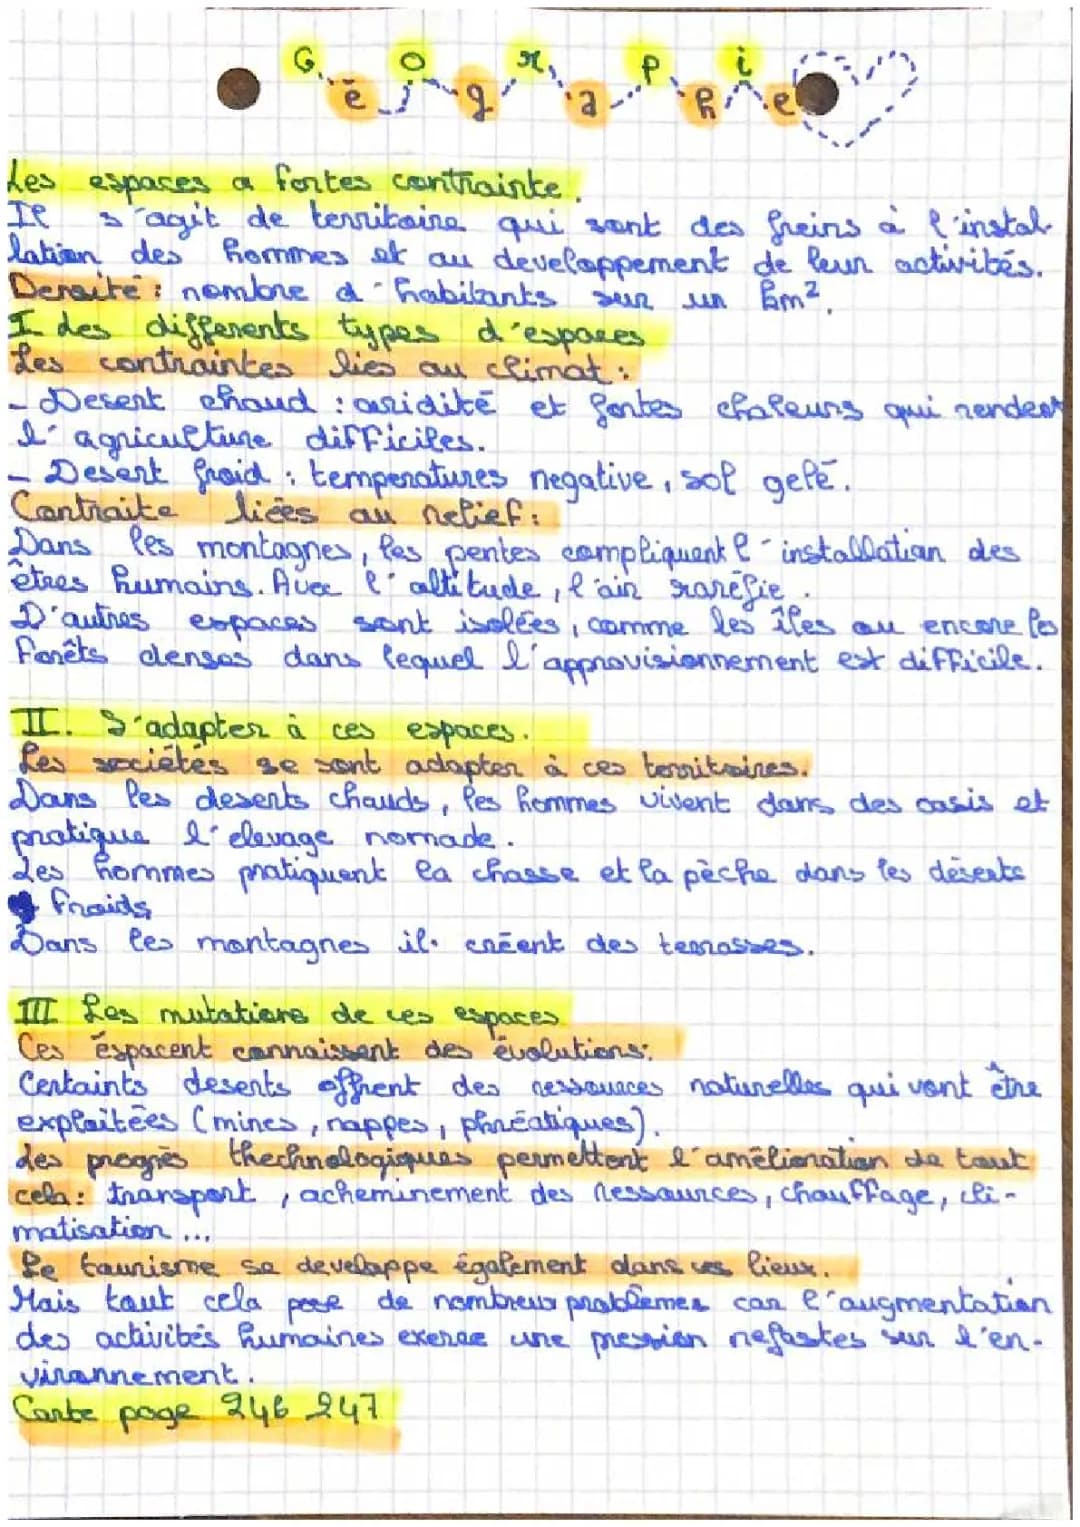 Géographie
Les espaces a fortes contrainte.
Il s'agit de territoire qui sont des freins à l'instal-
lation des hommes et au developpement de leur activités.
Densité : nombre d'habitants sur un km².
I des differents types d'espaces
Les contraintes lies au climat :
- Desert chaud : aridité et fortes chaleurs qui rendent
l'agriculture difficiles.
- Desert froid : temperatures negative, sol gelé.
Contraite liées au relief :
Dans les montagnes, les pentes compliquent l'installation des
êtres humains. Avec l'altitude, l'air raréfie.
D'autres espaces sont isolées, comme les îles ou encore les
forêts denses dans lequel l'approvisionnement est difficile.
II. S'adapter à ces espaces.
Les sociétés se sont adapter à ces territoires.
Dans les deserts chauds, les hommes vivent dans des oasis et
pratique l'elevage nomade.
Les hommes pratiquent la chasse et la pèche dans les déserts
froids
Dans les montagnes il. créent des terrasses.
III Les mutations de ces espaces
Ces éspacent connaissent des évolutions:
Certaints deserts offrent des ressources naturelles qui vont être
exploitées (mines, nappes, phréatiques).
Les progrès thechnologiques permettent l'amélioration de tout
cela : transport, acheminement des ressources, chauffage, cli-
matisation ...
Le tourisme se developpe également dans ces lieux.
Mais tout cela pose de nombreux problèmes car l'augmentation
des activités humaines exerce une pression nefastes sur l'en-
vironnement.
Carte page 246 247